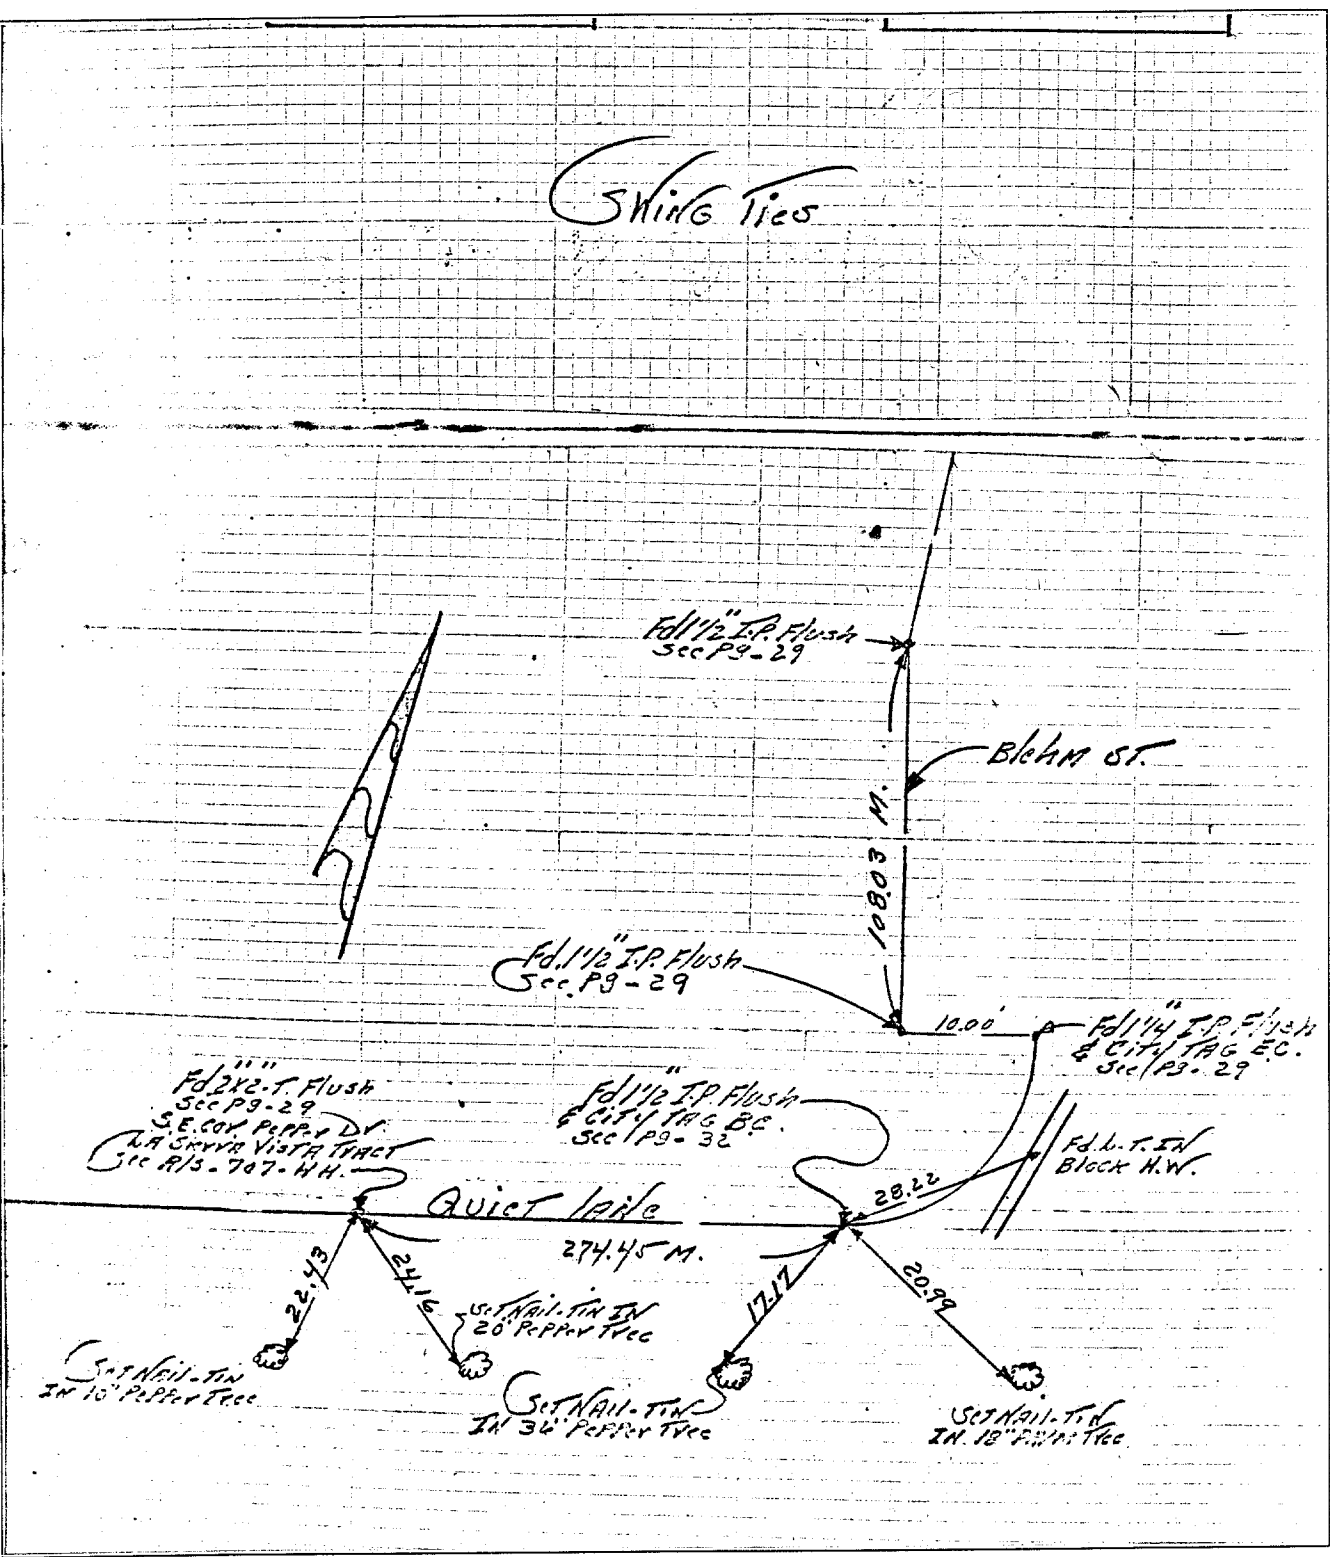 Swing Ties
Fd 1 1/2" I.P. Flush
See Pg-29
Blehm ST.
108.03 M.
Fd. 1 1/2" I.P. Flush
See Pg-29
10.00'
Fd 1 1/4" I.P. Flush
& City TAG E.C.
See Pg-29
Fd 2"x2"-T. Flush
See Pg-29
S.E. Cor. Pepper Dr.
Vista Tract
See R/S-707-HH.
Fd 1 1/2" I.P. Flush
& City TAG B.C.
See Pg-32
Fd. L.T. IN
Block H.W.
28.22
Quiet Lane
274.45 M.
22.43
24.16
17.17
20.99
Set Nail-Tin IN
20" Pepper Tree
Set Nail-Tin
IN 10" Pepper Tree
Set Nail-Tin
IN 36" Pepper Tree
Set Nail-Tin
IN 18" Palm Tree